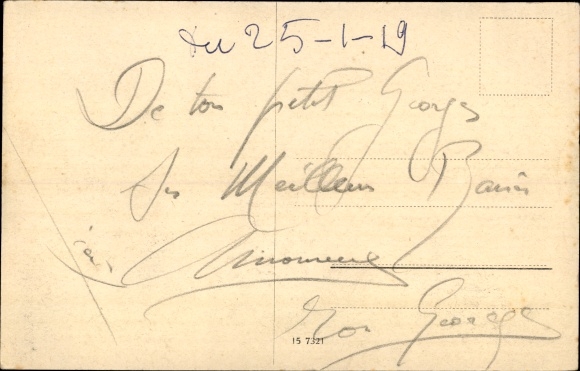 du 25-1-19
De ton petit Georges
Ses Meilleurs Baisers
Ton Georges
15 7321